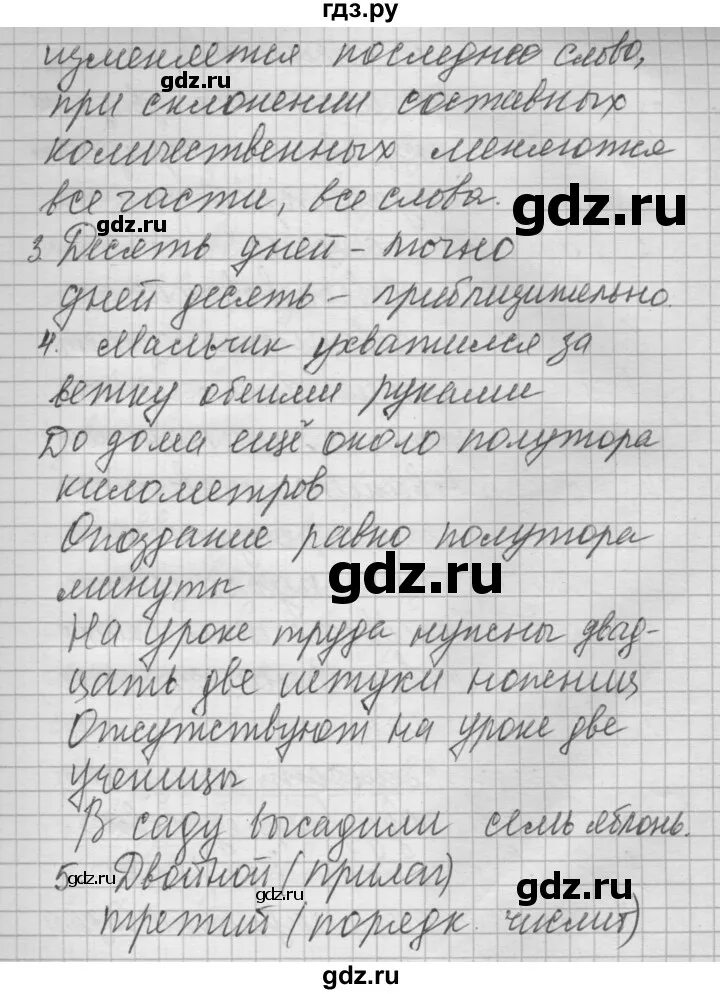 гдз.ру
изменяется последнее слово,
gdz.ru
при склонении составных
количественных меняются
все части, все слова.
gdz.ru
gdz.ru
3. Десять дней - точно
дней десять - приблизительно.
4. Мальчик ухватился за
ветку обеими руками
До дома ещё около полутора
километров
Опоздание равно полутора
минуты
gdz.ru
На уроке труда нужны двад-
цать две штуки ножниц
Отсутствуют на уроке две
ученицы
В саду высадили семь яблонь.
5. Двойной (прилаг)
gdz.ru
gdz.ru
gdz.ru
третий (порядк. числит)
gdz.ru